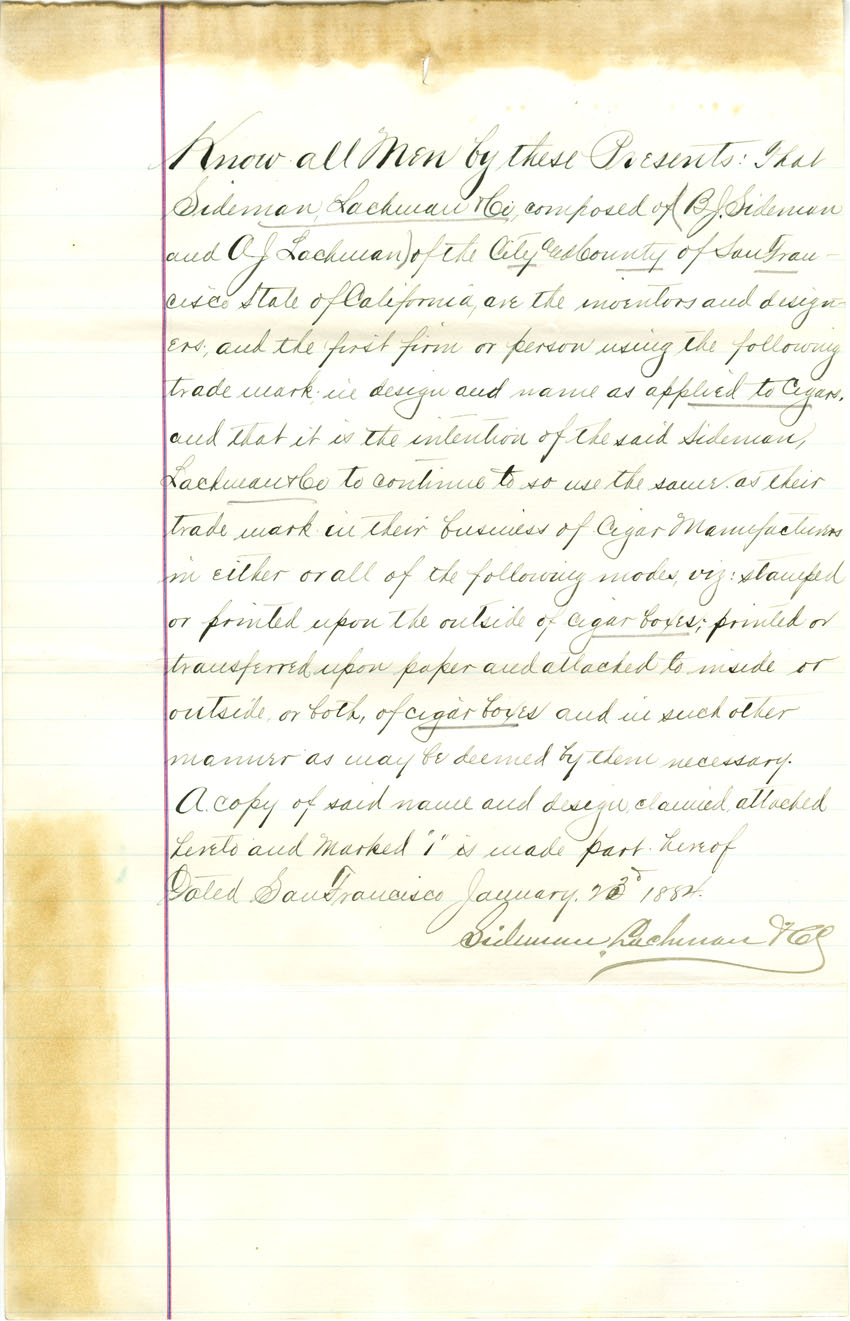 Know all Men by these Presents: That
Sideman, Lachman & Co, composed of (B.J. Sideman
and A J Lachman) of the City and County of San Fran-
cisco State of California, are the inventors and design-
ers, and the first firm or person using the following
trade mark in design and name as applied to Cigars,
and that it is the intention of the said Sideman,
Lachman & Co to continue to so use the same as their
trade mark in their business of Cigar Manufacturers
in either or all of the following modes, viz: stamped
or printed upon the outside of cigar boxes; printed or
transferred upon paper and attached to inside or
outside, or both, of cigar boxes and in such other
manner as may be deemed by them necessary.
A copy of said name and design, claimed, attached
hereto and Marked "1" is made part hereof
Dated San Francisco January 23d 1884.
Sideman, Lachman & Co